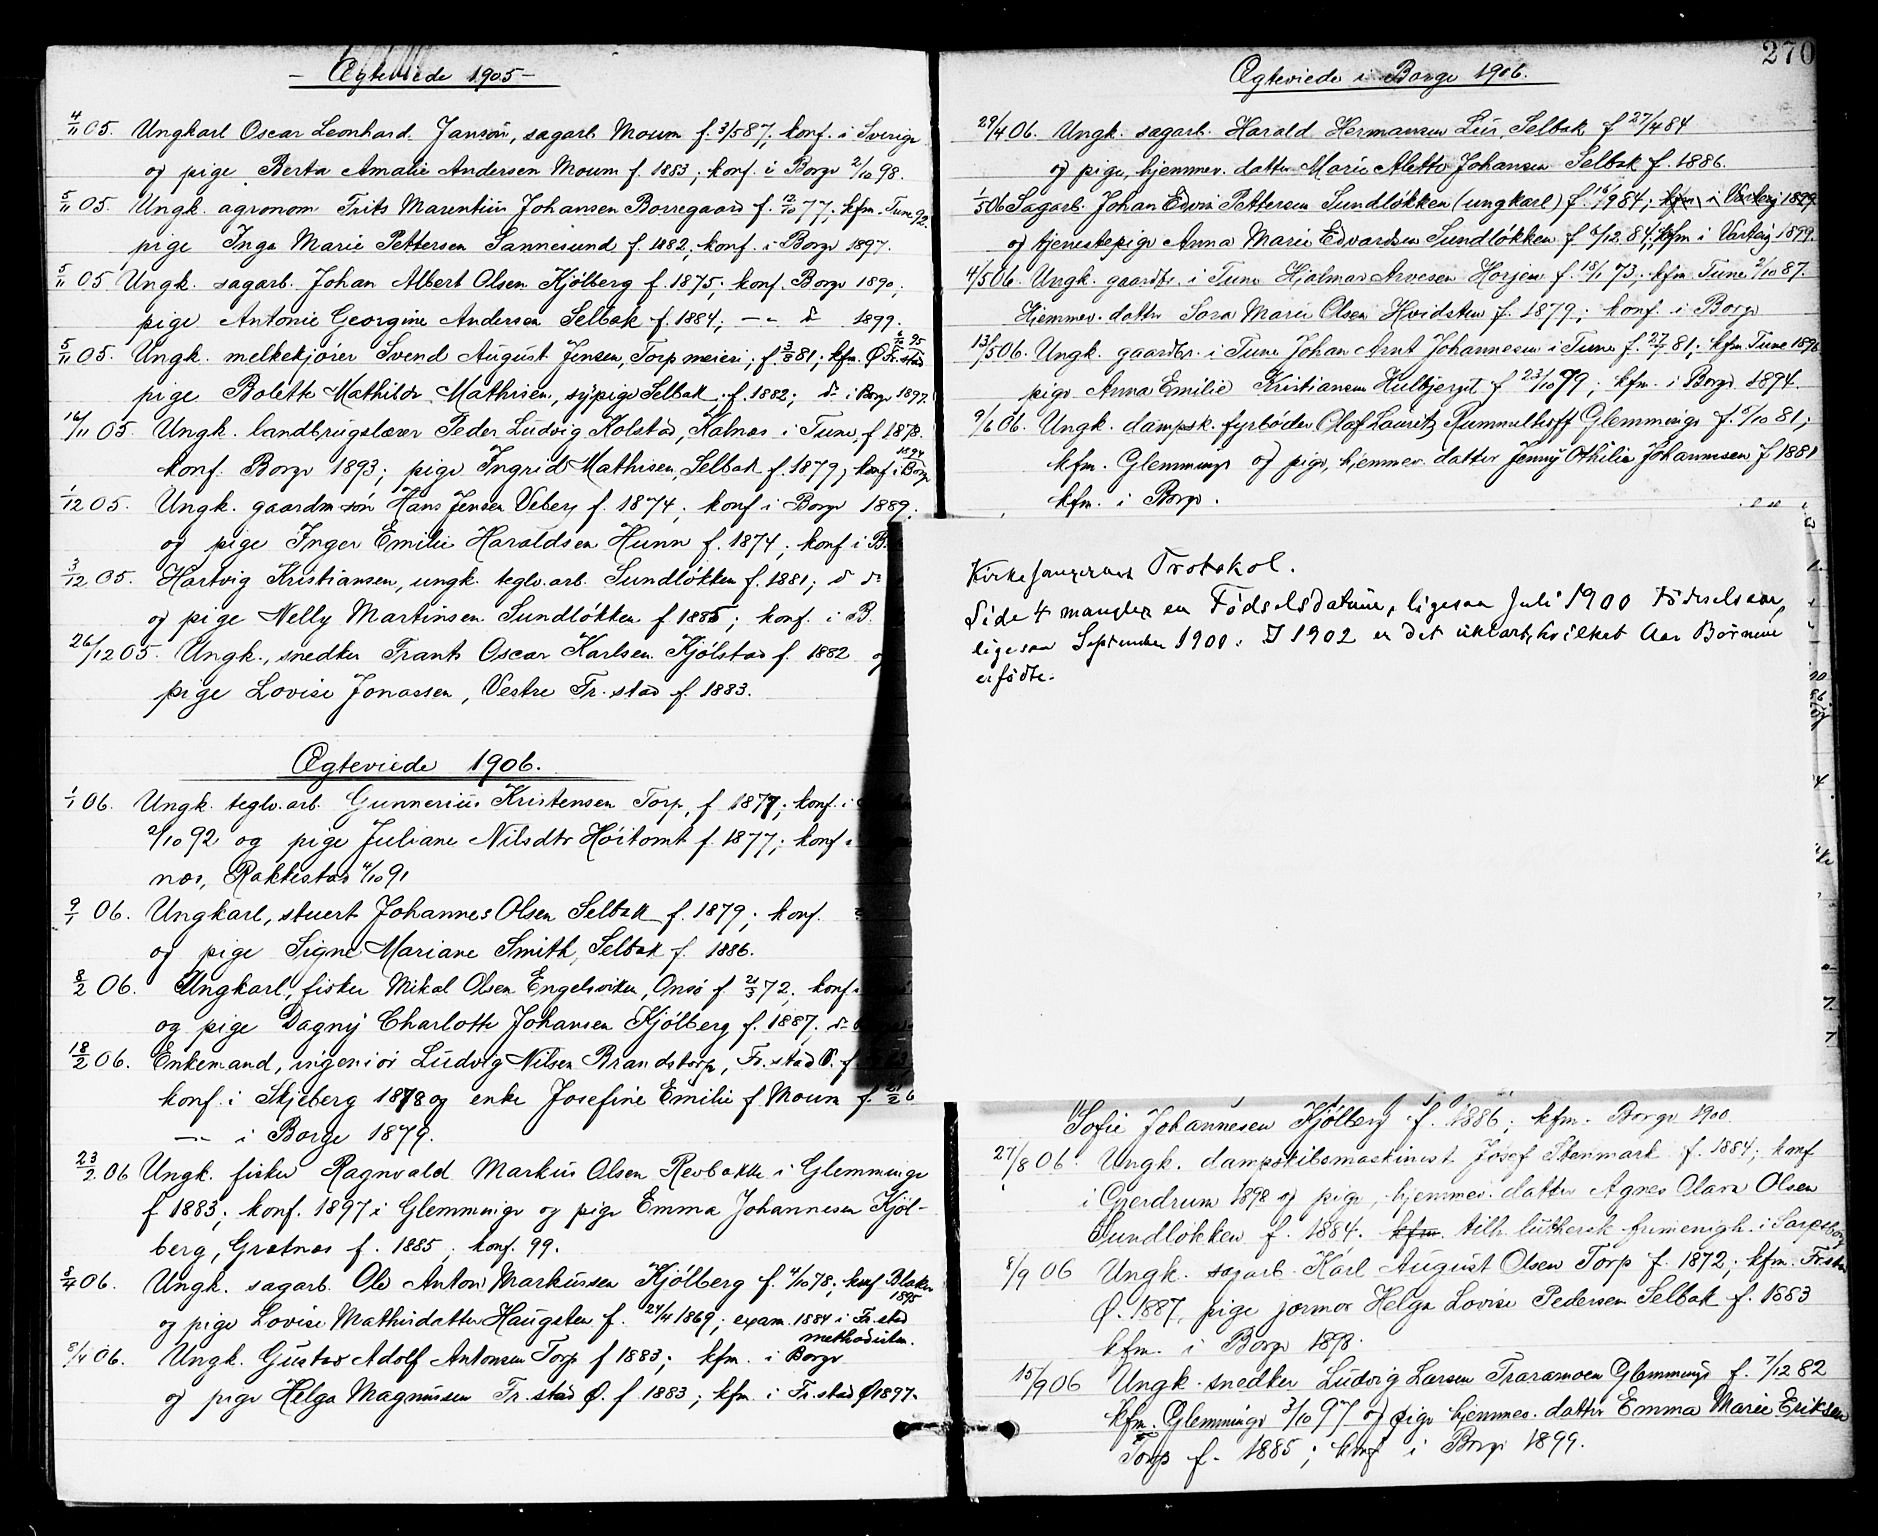 - Ægteviede 1905 -
4/11 05. Ungkarl Oscar Leonhard Janson, sagarb. Moum f. 3/5 87, konf. i Sverige
og pige Berta Amalie Andersen Moum f. 1883; konf. i Borge 2/10 98.
5/11 05. Ungk. agronom Frits Marentius Johansen Borregaard f. 12/10 77; kfm. Tune 92.
pige Inga Marie Pettersen Sannesund f. 1882; konf. i Borge 1897.
5/11 05 Ungk. sagarb. Johan Albert Olsen Kjølberg f. 1875; konf. Borge 1890;
pige Antonie Georgine Andersen Selbak f. 1884; -"- d 1899.
5/11 05. Ungk. melkekjører Svend August Jensen, Torp meieri; f. 3/8 81; kfm. Ø Fr.stad 95
pige Bolette Mathilde Mathisen, sypige Selbak, f. 1882; do i Borge 1897.
16/11 05. Ungk. landbrugslærer Peder Ludvig Kolstad, Kalnæs i Tune, f. 1878.
konf. Borge 1893; pige Ingrid Mathisen, Selbak f. 1879; konf i Borge 1894
1/12 05. Ungk. gaardm. søn Hans Jensen Veberg f. 1874; konf i Borge 1889.
og pige Inger Emilie Haraldsen Hunn f. 1874; konf i B.
3/12 05. Hartvig Kristiansen, ungk. teglv. arb. Sundløkken f. 1881; d do
og pige Nelly Martinsen Sundløkken f 1885; konf. i B.
26/12 05. Ungk., snedker Frants Oscar Karlsen Kjølstad f. 1882 o
pige Lovise Jonassen, Vestre Fr. stad f. 1883.
Ægteviede 1906.
1/1 06. Ungk. teglv. arb. Gunnerius Kristensen Torp, f 1877; konf. i
2/10 92 og pige Juliane Nilsdtr Høitomt f. 1877; konf.
næs, Rakkestad 4/10 91
9/1 06. Ungkarl, stuert Johannes Olsen Selbak f. 1879; konf.
og pige Signe Mariane Smith, Selbak f. 1886.
8/2 06. Ungkarl, fisker Mikal Olsen Engelsviken, Onsø f 21/3 72; konf.
og pige Dagny Charlotte Johansen Kjølberg f. 1887. do
18/2 06. Enkemand, ingeniør Ludvig Nilsen Brandstorp, Fr. stad Ø. f.
konf. i Skjeberg 1878 og enke Josefine Emilie f Moum f. 21/2 6
-"- i Borge 1879.
23/2 06 Ungk. fisker Ragnvald Markus Olsen Revbakke i Glemminge
f 1883; konf. 1897 i Glemminge og pige Emma Johannesen Kjøl-
berg, Grætnæs f. 1885; konf. 99.
8/4 06. Ungk. sagarb. Ole Anton Markussen Kjølberg f. 4/10 78; konf Blaker 1895
og pige Lovise Mathisdatter Haugsten f. 24/4 1869; exam. 1884 i Fr. stad methodistm.
8/4 06. Ungk. Gustav Adolf Antonsen Torp f 1883; kfm. i Borge
og pige Helga Magnussen Fr. stad Ø. f 1883; kfm. i Fr. stad Ø 1897.
270
Ægteviede i Borge 1906.
29/4 06. Ungk. sagarb. Harald Hermansen Lie, Selbak f 27/4 84
og pige, hjemmev. datter Marie Alette Johansen Selbak f. 1886.
1/5 06 Sagarb. Johan Edvin Pettersen Sundløkken (ungkarl) f. 16/9 84; kfm i Varteig 1899.
og tjenestepige Anna Marie Edvardsen Sundløkken f 6/12 84; kfm i Varteig 1899.
4/5 06. Ungk. gaardbr. i Tune Hjalmar Arvesen Horjen f. 18/1 73; kfm. Tune 2/10 87.
Hjemmev. datter Sara Marie Olsen Hvidsten f. 1879; konf. i Borge
13/5 06. Ungk. gaardbr. i Tune Johan Arnt Johannesen i Tune f. 27/7 81; kfm. Tune 1896
pige Anna Emilie Kristiansen Hulbjerget f 23/10 79; kfm. i Borge 1894.
9/6 06. Ungk. dampsk. fyrbøder Olaf Lauritz Rummelhoff Glemminge f. 5/10 81;
kfm. Glemminge og pige, hjemmev. datter Jenny Othilie Johannesen f 1881
kfm. i Borge.
Kirkesangerens Protokol.
Side 4 mangler en Fødselsdatum, ligesaa Juli 1900 Fødselsaar,
ligesaa September 1900. I 1902 er det uklart hvilket Aar Børnene
er fødte.
Sofie Johannesen Kjølberg f. 1886; kfm. Borge 1900.
27/8 06. Ungk. dampskibsmaskinist Josef Stenmark f. 1884; konf
i Gjerdrum 1898 og pige, hjemmev. datter Agnes Clara Olsen
Sundløkken f. 1884. kfm. tilh. luthersk frimenigh. i Sarpsborg
8/9 06 Ungk. sagarb. Karl August Olsen Torp f. 1872; kfm. Fr.stad
Ø. 1887, pige jormor Helga Lovise Pedersen Selbak f. 1883
kfm. i Borge 1898.
15/9 06 Ungk. snedker Ludvig Larsen Traramoen Glemminge f. 7/12 82
kfm. Glemminge 3/10 97 og pige hjemmev. datter Emma Marie Eriksen
Torp f. 1885; konf i Borge 1899.